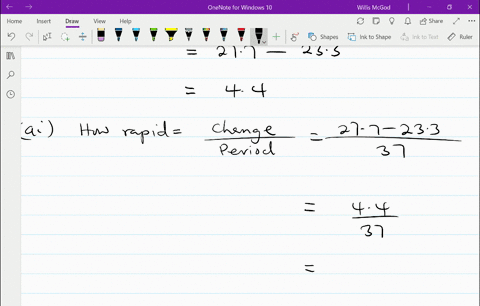 OneNote for Windows 10
Willis McGod
Home Insert Draw View Help
Share
Shapes Ink to Shape Ink to Text Ink to Math Ruler
= 27.7 — 23.3
= 4.4
(ai) How rapid = Change / Period = 27.7 – 23.3 / 37
= 4.4 / 37
=